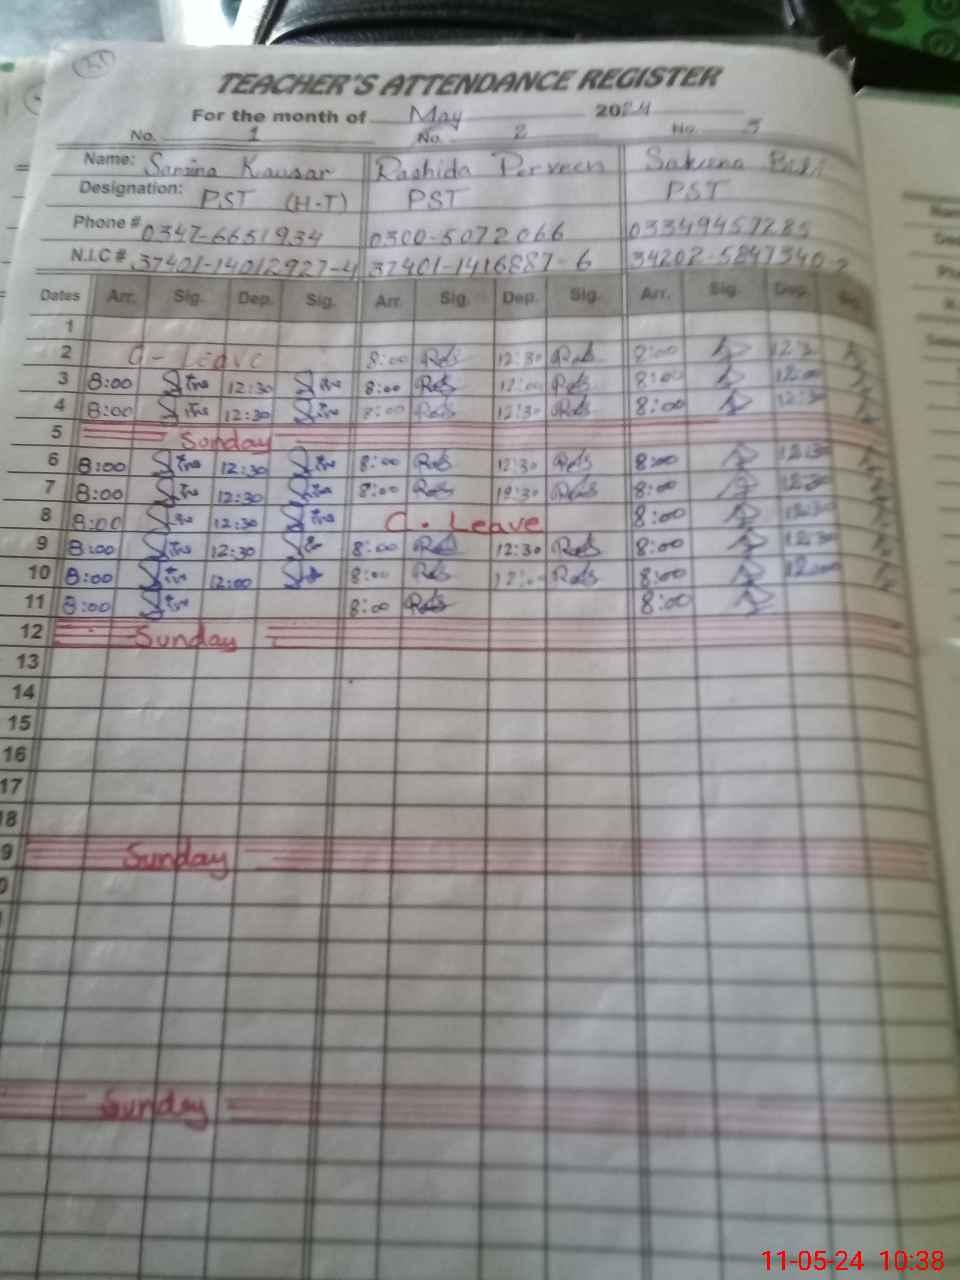 TEACHER'S ATTENDANCE REGISTER
For the month of May 2024
No. 1 No. 2 No. 3
Name: Samina Kausar Rashida Perveen Sakeena Bibi
Designation: PST (H-T) PST PST
Phone # 0347-6651934 0300-5072066 03349457285
N.I.C # 37401-14012927-4 37401-1416887-6 34202-5847340-2
Dates Arr. Sig. Dep. Sig. Arr. Sig. Dep. Sig. Arr. Sig. Dep. Sig.
1
2 C - Leave 8:00 12:30 8:00 12:3
3 8:00 12:30 8:00 12:00 8:00 12:00
4 8:00 12:30 8:00 12:30 8:00 12:30
5 Sunday
6 8:00 12:30 8:00 12:30 8:00 12:30
7 8:00 12:30 8:00 12:30 8:00 12:30
8 8:00 12:30 C. Leave 8:00 12:30
9 8:00 12:30 8:00 12:30 8:00 12:30
10 8:00 12:00 8:00 12:00 8:00 12:00
11 8:00 8:00 8:00
12 Sunday
13
14
15
16
17
18
9 Sunday
0
Sunday
11-05-24 10:38